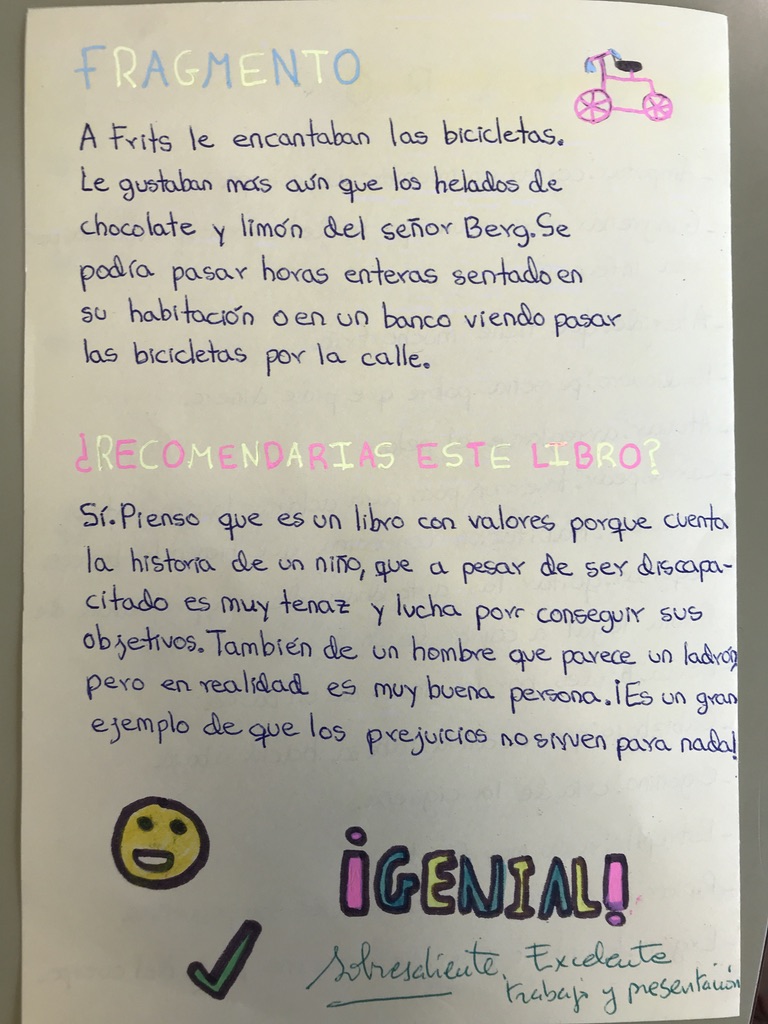 FRAGMENTO
A Frits le encantaban las bicicletas.
Le gustaban más aún que los helados de
chocolate y limón del señor Berg. Se
podía pasar horas enteras sentado en
su habitación o en un banco viendo pasar
las bicicletas por la calle.
¿RECOMENDARIAS ESTE LIBRO?
Sí. Pienso que es un libro con valores porque cuenta
la historia de un niño, que a pesar de ser discapa-
citado es muy tenaz y lucha por conseguir sus
objetivos. También de un hombre que parece un ladrón
pero en realidad es muy buena persona. ¡Es un gran
ejemplo de que los prejuicios no sirven para nada!
¡GENIAL!
Sobresaliente. Excelente
trabajo y presentación